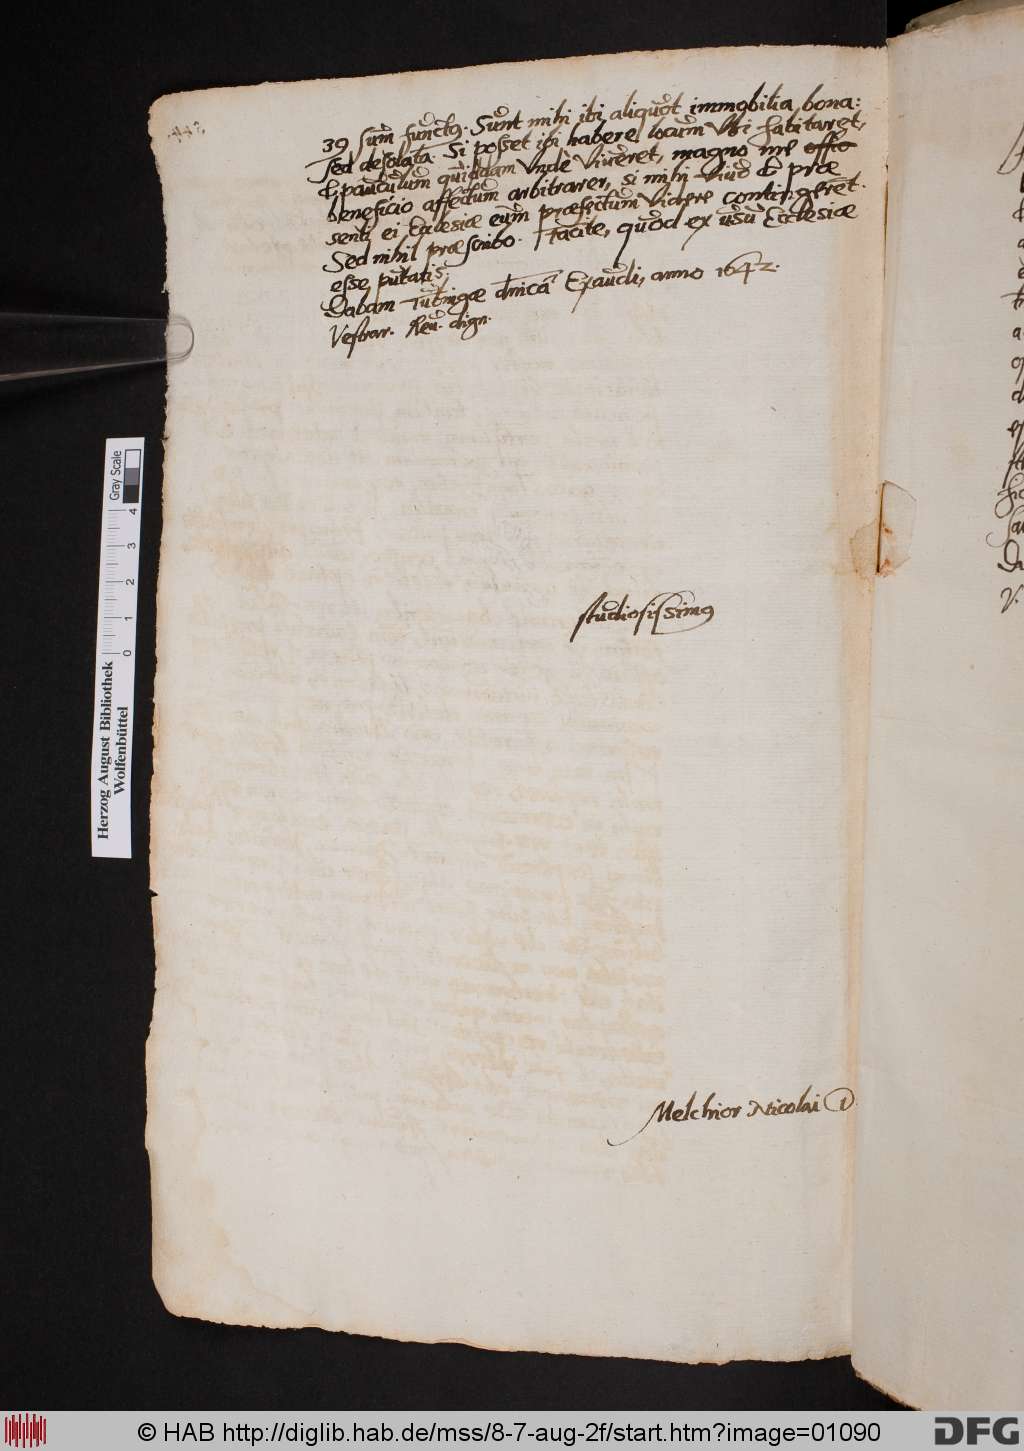 39 sum functus. Sunt mihi ibi aliquot immobilia bona:
Sed desolata. Si posset ibi habere locum Vbi habitaret,
& pauculum quiddam Vnde Viveret, magno me offic
beneficio affectum arbitrarer, si mihi vivo & præ
senti ei Ecclesiæ eum præfectum Videre contingeret.
Sed nihil præscribo. Facite, quod ex usu Ecclesiæ
esse putatis.
Dabam Tubingæ dnicâ Exaudi, anno 1642.
Vestrar. Reu. dign.
studiosissimus
Melchior Nicolai D.
Herzog August Bibliothek
Wolfenbüttel
0 1 2 3 4
Gray Scale
© HAB http://diglib.hab.de/mss/8-7-aug-2f/start.htm?image=01090
DFG